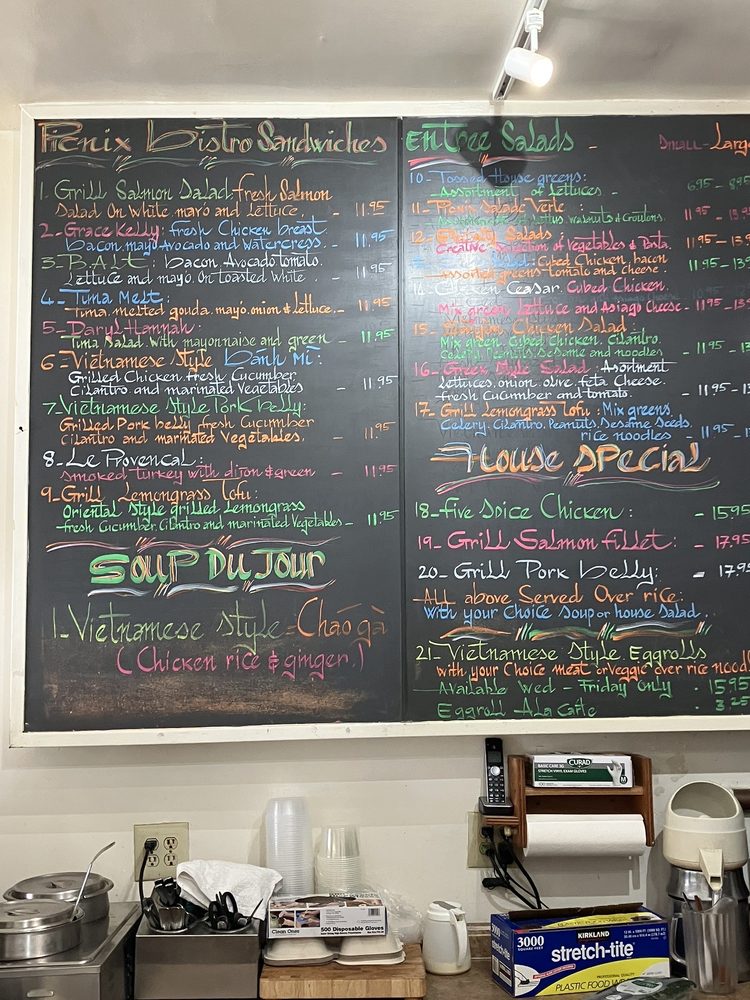 Picnix Bistro Sandwiches
1. Grill Salmon Salad: fresh Salmon
Salad On White mayo and Lettuce. - 11.95
2- Grace Kelly: fresh Chicken breast
bacon, mayo, Avocado and watercress. - 11.95
3- B.A.L.T: bacon, Avocado, tomato.
Lettuce and mayo. On toasted White - 11.95
4- Tuna Melt:
Tuna, melted gouda, mayo, onion & lettuce. - 11.95
5- Daryl Hannah:
Tuna Salad with mayonnaise and green - 11.95
6- Vietnamese Style Banh Mi:
Grilled Chicken fresh Cucumber
Cilantro and marinated Vegetables - 11.95
7- Vietnamese Style Pork belly:
Grilled Pork belly fresh Cucumber
Cilantro and marinated Vegetables. - 11.95
8- Le Provencal:
smoked turkey with dijon & green - 11.95
9- Grill Lemongrass Tofu:
Oriental Style grilled Lemongrass
fresh Cucumber, Cilantro and marinated Vegetables - 11.95
Soup Du Jour
1- Vietnamese style - Cháo gà
(Chicken rice & ginger.)
Entree Salads - Small - Large
10- Tossed House greens:
Assortment of Lettuces - 6.95 - 8.95
11- Picnix Salade Verte:
Lettus walnuts & Croutons. 11.95 -
12- Salads
Creative Selection of Vegetables & Pasta. 11.95 -
Cubed Chicken, bacon
assorted greens tomato and cheese. 11.95 -
14- Chicken Ceasar: Cubed Chicken.
Mix green Lettuce and Asiago Cheese - 11.95 -
15- Chicken Salad:
Mix green, Cubed Chicken, Cilantro,
Celery, Peanuts, Sesame and noodles - 11.95 -
16- Greek Style Salad: Asortment
Lettuces, onion, olive, feta Cheese.
fresh Cucumber and tomato. - 11.95 -
17- Grill Lemongrass Tofu: Mix greens,
Celery, Cilantro, Peanuts, Sesame Seeds,
rice noodles 11.95 -
House Special
18- Five Spice Chicken: - 15.95
19- Grill Salmon fillet: - 17.95
20- Grill Pork belly: - 17.95
All above Served Over rice.
With your Choice Soup or house Salad.
21- Vietnamese Style Eggrolls
with your Choice meat or Veggie over rice
Available Wed - Friday Only - 15.95
Eggroll A La Carte - 3.25
CURAD
BASIC CARE 3G
STRETCH VINYL EXAM GLOVES
M
Clean Ones
500 DISPOSABLE GLOVES
3000
SQUARE FEET
KIRKLAND
stretch-tite
PROFESSIONAL QUALITY
PLASTIC FOOD